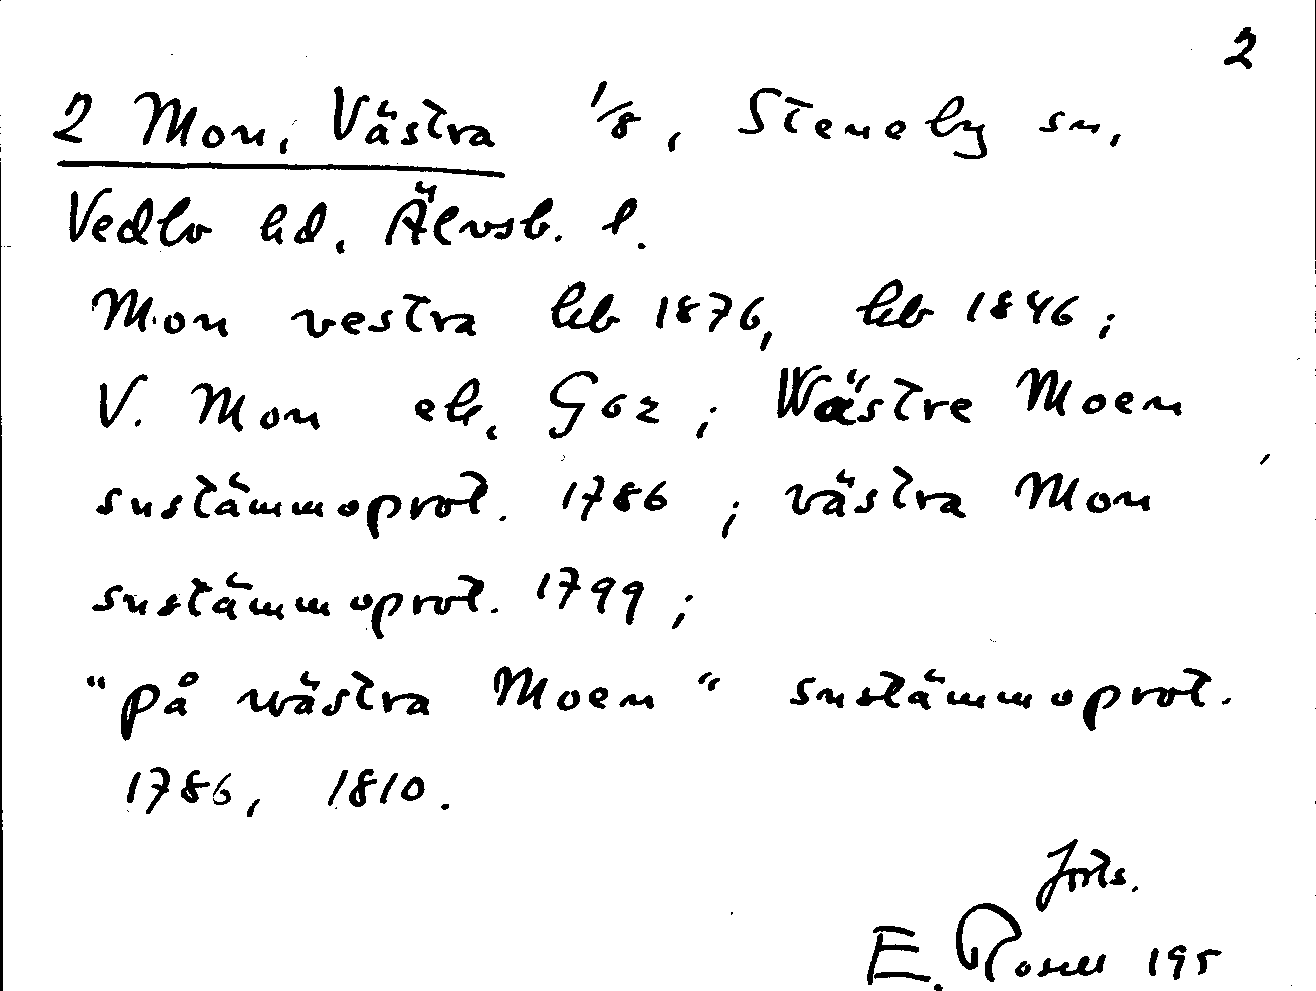 2
2 Mon, Västra 1/8, Steneby sn,
Vedbo hd, Älvsb. l.
Mon vestra hb 1876, hb 1846;
V. Mon ek, Goz; Wästre Moen
snstämmoprot. 1786; västra Mon
snstämmoprot. 1799;
"på wästra Moen" snstämmoprot.
1786, 1810.
forts.
E. Rosell 195